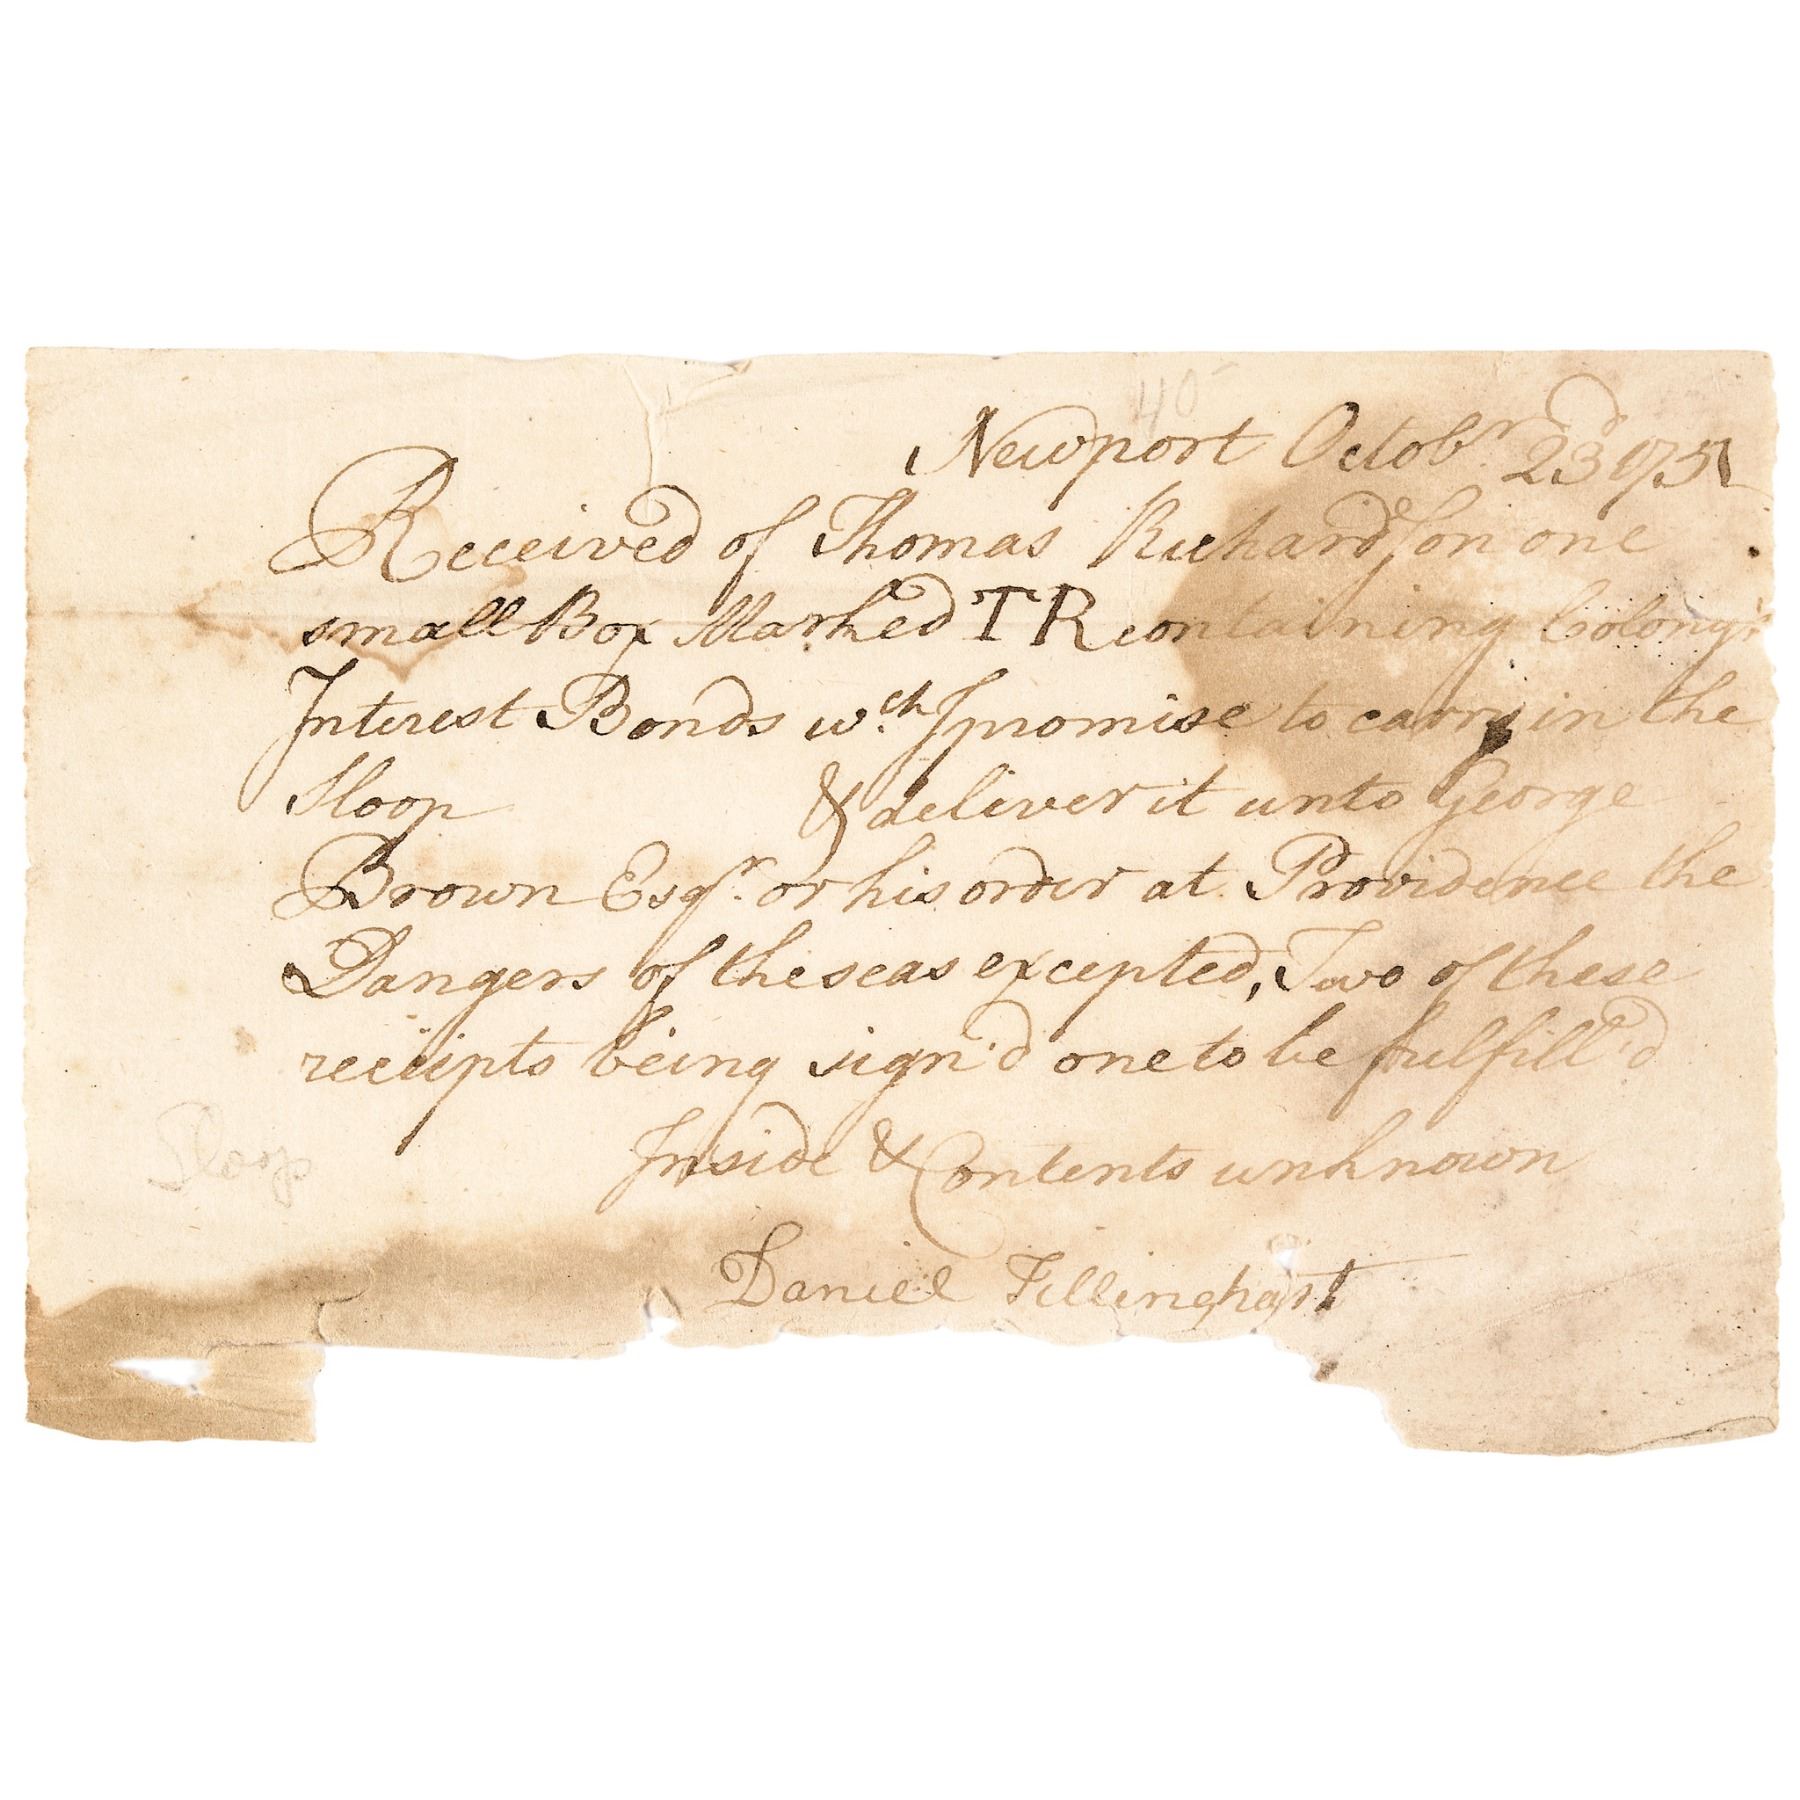 40
Newport Octobr. 23d 1751
Received of Thomas Richardson one
small Box Marked TR containing Colony's
Interest Bonds wch I promise to carry in the
Sloop & deliver it unto George
Brown Esqr. or his order at Providence the
Dangers of the seas excepted, Two of these
receiipts being sign'd one to be fulfill'd
Inside & Contents unknown
Sloop
Daniel Tillinghast